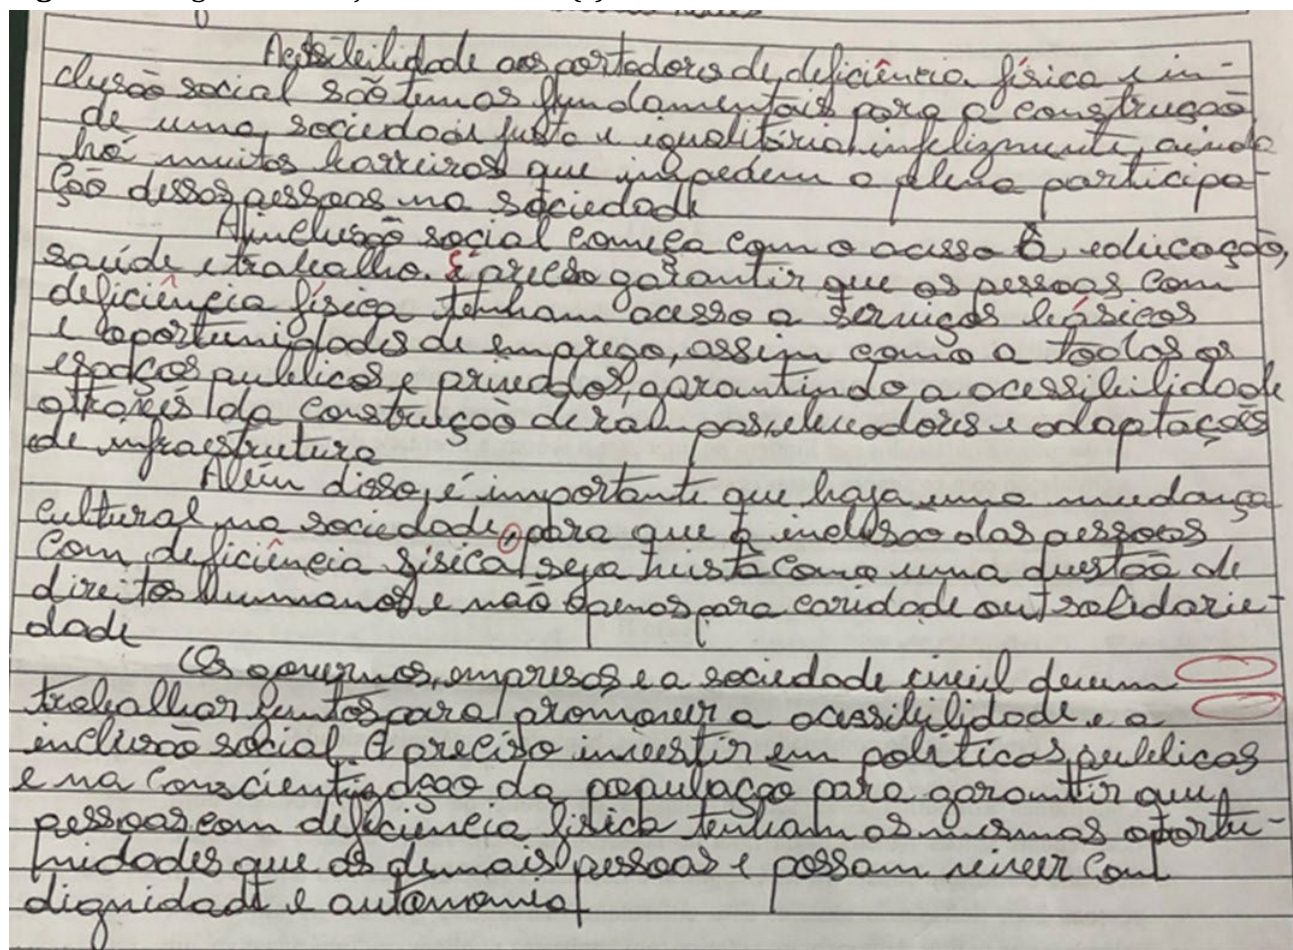 Acessibilidade aos portadores de deficiência física e in-
clusão social são temas fundamentais para a construção
de uma sociedade justa e igualitária infelizmente, ainda
há muitas barreiras que impedem a plena participa-
ção dessas pessoas na sociedade
A inclusão social começa com o acesso à educação,
saúde e trabalho. É preciso garantir que as pessoas com
deficiência física tenham acesso a serviços básicos
e oportunidades de emprego, assim como a todos os
espaços publicos e privados, garantindo a acessibilidade
através da construção de rampas, elevadores e adaptações
de infraestrutura
Além disso, é importante que haja uma mudança
cultural na sociedade, para que a inclusão das pessoas
com deficiência fisica seja vista como uma questão de
direitos humanos e não apenas para caridade ou solidarie-
dade
Os governos, empresas e a sociedade civil devem
trabalhar juntos para promover a acessibilidade e a
inclusão social. É preciso investir em políticas publicas
e na conscientização da população para garantir que
pessoas com deficiência física tenham as mesmas oportu-
nidades que as demais pessoas e possam viver com
dignidade e autonomia